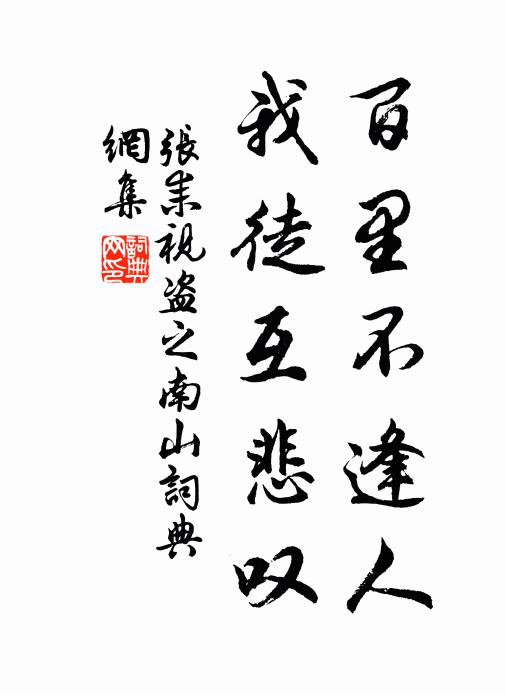 百里不逢人
我徒互悲叹
張耒視盗之南山詞典
網集
詞典
网印